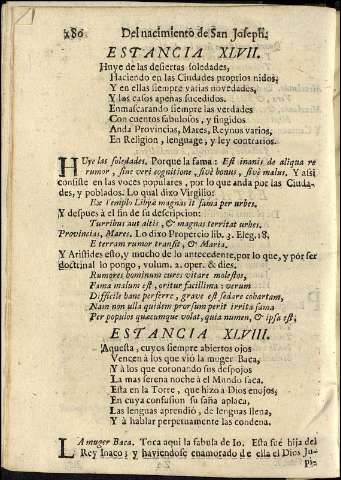 286 Del nacimiento de San Joseph.
ESTANCIA XLVII.
Huye de las desiertas soledades,
Haciendo en las Ciudades proprios nidos;
Y en ellas siempre varias novedades,
Y los casos apenas sucedidos.
Enmascarando siempre las verdades
Con cuentos fabulosos, y fingidos
Anda Provincias, Mares, Reynos varios,
En Religion, lenguage, y ley contrarios.
HUye las soledades. Porque la fama: Est inanis de aliqua re
rumor, sine veri cognitione, sivè bonus, sivè malus. Y asi
consiste en las voces populares, por lo que anda por las Ciuda-
des, y poblados. Lo qual dixo Virgilio:
Ex Templo Libyæ magnas it fama per urbes.
Y despues à el fin de su descripcion:
Turribus aut altis, & magnas territat urbes.
Provincias, Mares. Lo dixo Propercio lib. 2. Eleg. 18.
E terram rumor transit, & Maria.
Y Aristides esto, y mucho de lo antecedente, por lo que, y por ser
doctrinal lo pongo, volum. 2. oper. & dies.
Rumores hominum cures vitare molestos,
Fama malum est, oritur facillima: verum
Difficile hanc perferre, grave est sedare cohartam,
Nam non ulla quidem prorsum perit irrita fama
Per populos quæcumque volat, quia numen, & ipsa est;
ESTANCIA XLVIII.
Aquesta, cuyos siempre abiertos ojos
Vencen à los que viò la muger Baca,
Y à los que coronando sus despojos
La mas serena noche à el Mundo saca.
Esta en la Torre, que hizo à Dios enojos;
En cuya confusion su saña aplaca,
Las lenguas aprendiò, de lenguas llena,
Y à hablar perpetuamente las condena.
LA muger Baca. Toca aqui la fabula de Io. Esta fuè hija del
Rey Inaco; y haviendose enamorado de ella el Dios Ju-
pi-